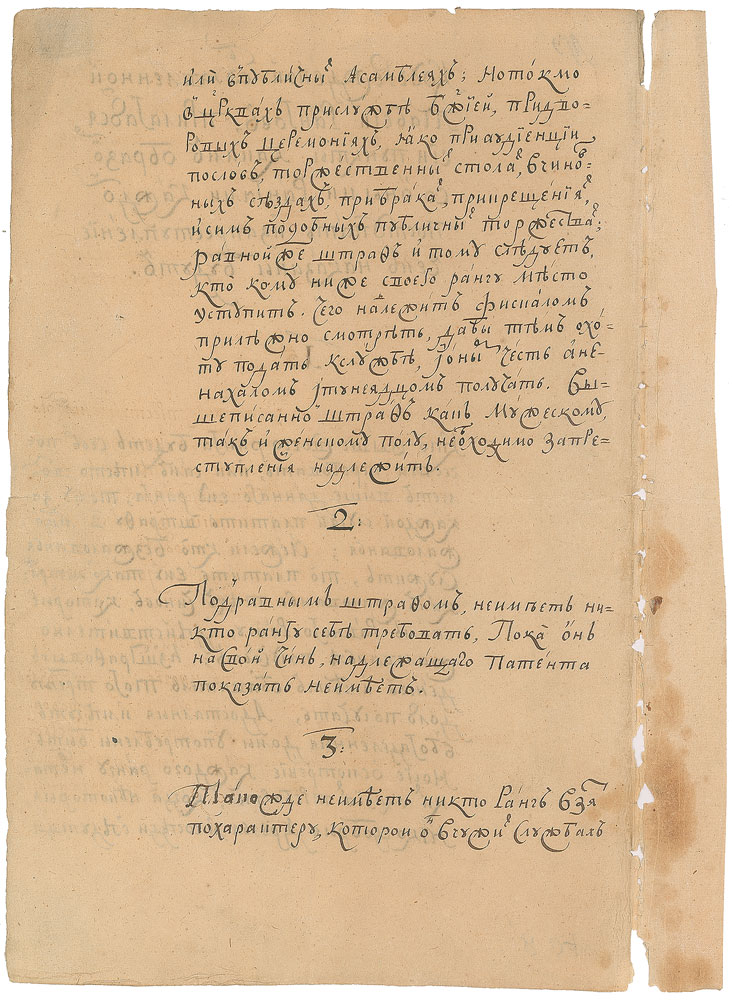 или впублічныⷯ Асамблеяхъ; Но токмо
вцерквахъ прислужбѣ Бжіей, придво-
ровыхъ церемоніяхъ, яко приаудіенціи
пословъ, торжественныⷯ столаⷯ, вчинов-
ныхъ сѣздахъ, прибракаⷯ, прикрещеніяⷯ,
и симъ подобныхъ публичныⷯ торжестваⷯ;
равной же штрафъ и тому слѣдуетъ,
кто кому ниже своего рангу мѣсто
уступитъ. Чего належитъ фискаломъ
прилѣжно смотрѣть, дабы тѣмъ охо-
ту подать кслужбѣ, и онымъ честь ане-
нахаломъ и тунеядцомъ получать. Вы-
шеписанной штрафъ какъ мужескому,
такъ и женскому полу, необходимо запре-
ступленія надлежитъ.
2:
Подравнымъ штрафомъ, неимѣетъ ни-
кто рангу себѣ требовать, Пока онъ
насвой чинъ, надлежащаго Патента
показать неимѣетъ.
3:
Такожде неимѣетъ никто Рангъ взяⷮ
похарактеру, которой онъ вчужиⷯ службахъ